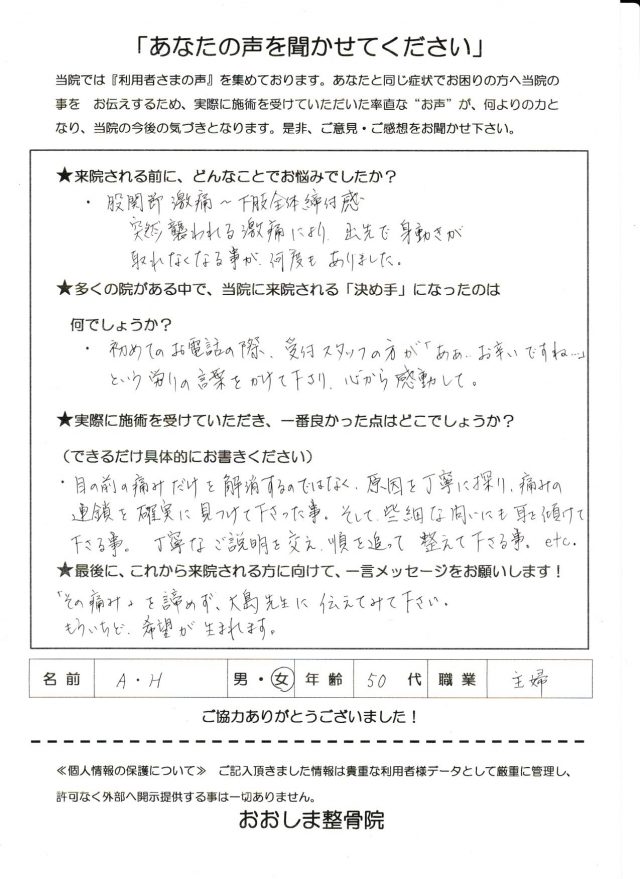 「あなたの声を聞かせてください」
当院では『利用者さまの声』を集めております。あなたと同じ症状でお困りの方へ当院の
事を　お伝えするため、実際に施術を受けていただいた率直な“お声”が、何よりの力と
なり、当院の今後の気づきとなります。是非、ご意見・ご感想をお聞かせ下さい。
★来院される前に、どんなことでお悩みでしたか？
・股関節 激痛～下肢全体締付感
突然 襲われる激痛により、出先で身動きが
取れなくなる事が、何度も ありました。
★多くの院がある中で、当院に来院される「決め手」になったのは
何でしょうか？
・初めてのお電話の際、受付スタッフの方が「あぁ、お辛いですね…」
という労りの言葉をかけて下さり、心から感動して。
★実際に施術を受けていただき、一番良かった点はどこでしょうか？
（できるだけ具体的にお書きください）
・目の前の痛みだけを解消するのではなく、原因を丁寧に探り、痛みの
連鎖を確実に見つけて下さった事。そして、些細な問いにも耳を傾けて
下さる事。丁寧なご説明を交え、順を追って 整えて下さる事。etc.
★最後に、これから来院される方に向けて、一言メッセージをお願いします！
「その痛み」を諦めず、大島先生に伝えてみて下さい。
もういちど、希望が生まれます。
名前 A・H 男・女 年齢 50代 職業 主婦
ご協力ありがとうございました！
≪個人情報の保護について≫　ご記入頂きました情報は貴重な利用者様データとして厳重に管理し、
許可なく外部へ開示提供する事は一切ありません。
おおしま整骨院